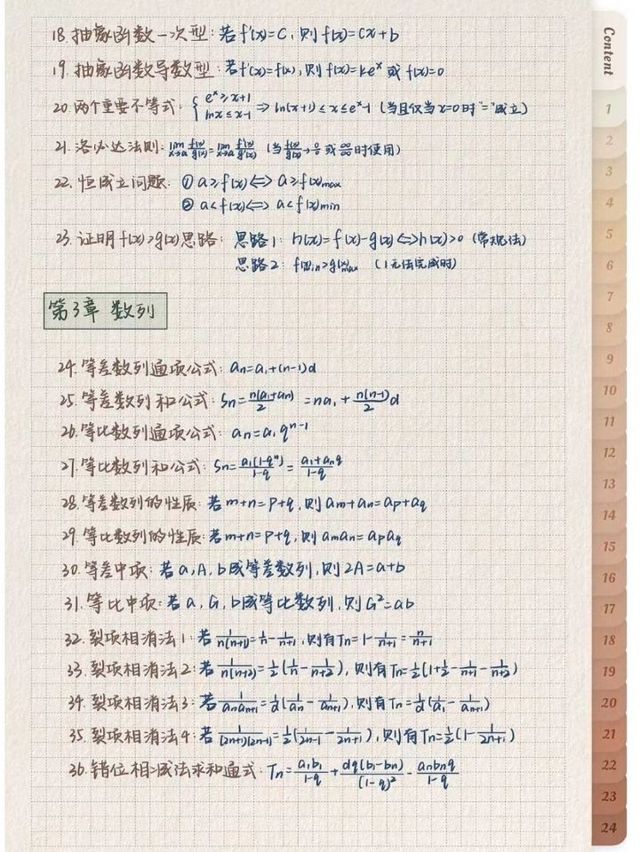 18.抽象函数一次型:若f'(x)=C,则f(x)=cx+b
19.抽象函数导数型:若f'(x)=f(x),则f(x)=ke^x 或 f(x)=0
20.两个重要不等式:{e^x≥x+1 lnx≤x-1 ⇒ ln(x+1)≤x≤e^x-1 (当且仅当x=0时"="成立)
21.洛必达法则:lim x→a f(x)/g(x)=lim x→a f'(x)/g'(x) (当f(x)/g(x)→0/0或∞/∞时使用)
22.恒成立问题:①a≥f(x)⟺a≥f(x)max
②a<f(x)⟺a<f(x)min
23.证明f(x)>g(x)思路:思路1:h(x)=f(x)-g(x)⟺h(x)>0 (常规法)
思路2:f(x)min>g(x)max (1无法完成时)
第3章 数列
24.等差数列通项公式:an=a1+(n-1)d
25.等差数列和公式:Sn=n(a1+an)/2=na1+n(n-1)/2 d
26.等比数列通项公式:an=a1q^n-1
27.等比数列和公式:Sn=a1(1-q^n)/1-q=a1+anq/1-q
28.等差数列的性质:若m+n=p+q,则am+an=ap+aq
29.等比数列的性质:若m+n=p+q,则aman=apaq
30.等差中项:若a,A,b成等差数列,则2A=a+b
31.等比中项:若a,G,b成等比数列,则G²=ab
32.裂项相消法1:若1/n(n+1)=1/n-1/n+1,则有Tn=1-1/n+1=n/n+1
33.裂项相消法2:若1/n(n+2)=1/2(1/n-1/n+2),则有Tn=1/2(1+1/2-1/n+1-1/n+2)
34.裂项相消法3:若1/anan+1=1/d(1/an-1/an+1),则有Tn=1/d(1/a1-1/an+1)
35.裂项相消法4:若1/(2n+1)(2n-1)=1/2(1/2n-1-1/2n+1),则有Tn=1/2(1-1/2n+1)
36.错位相减法求和通式:Tn=a1b1/1-q+dq(b1-bn)/(1-q)²-anbnq/1-q
Content
1
2
3
4
5
6
7
8
9
10
11
12
13
14
15
16
17
18
19
20
21
22
23
24